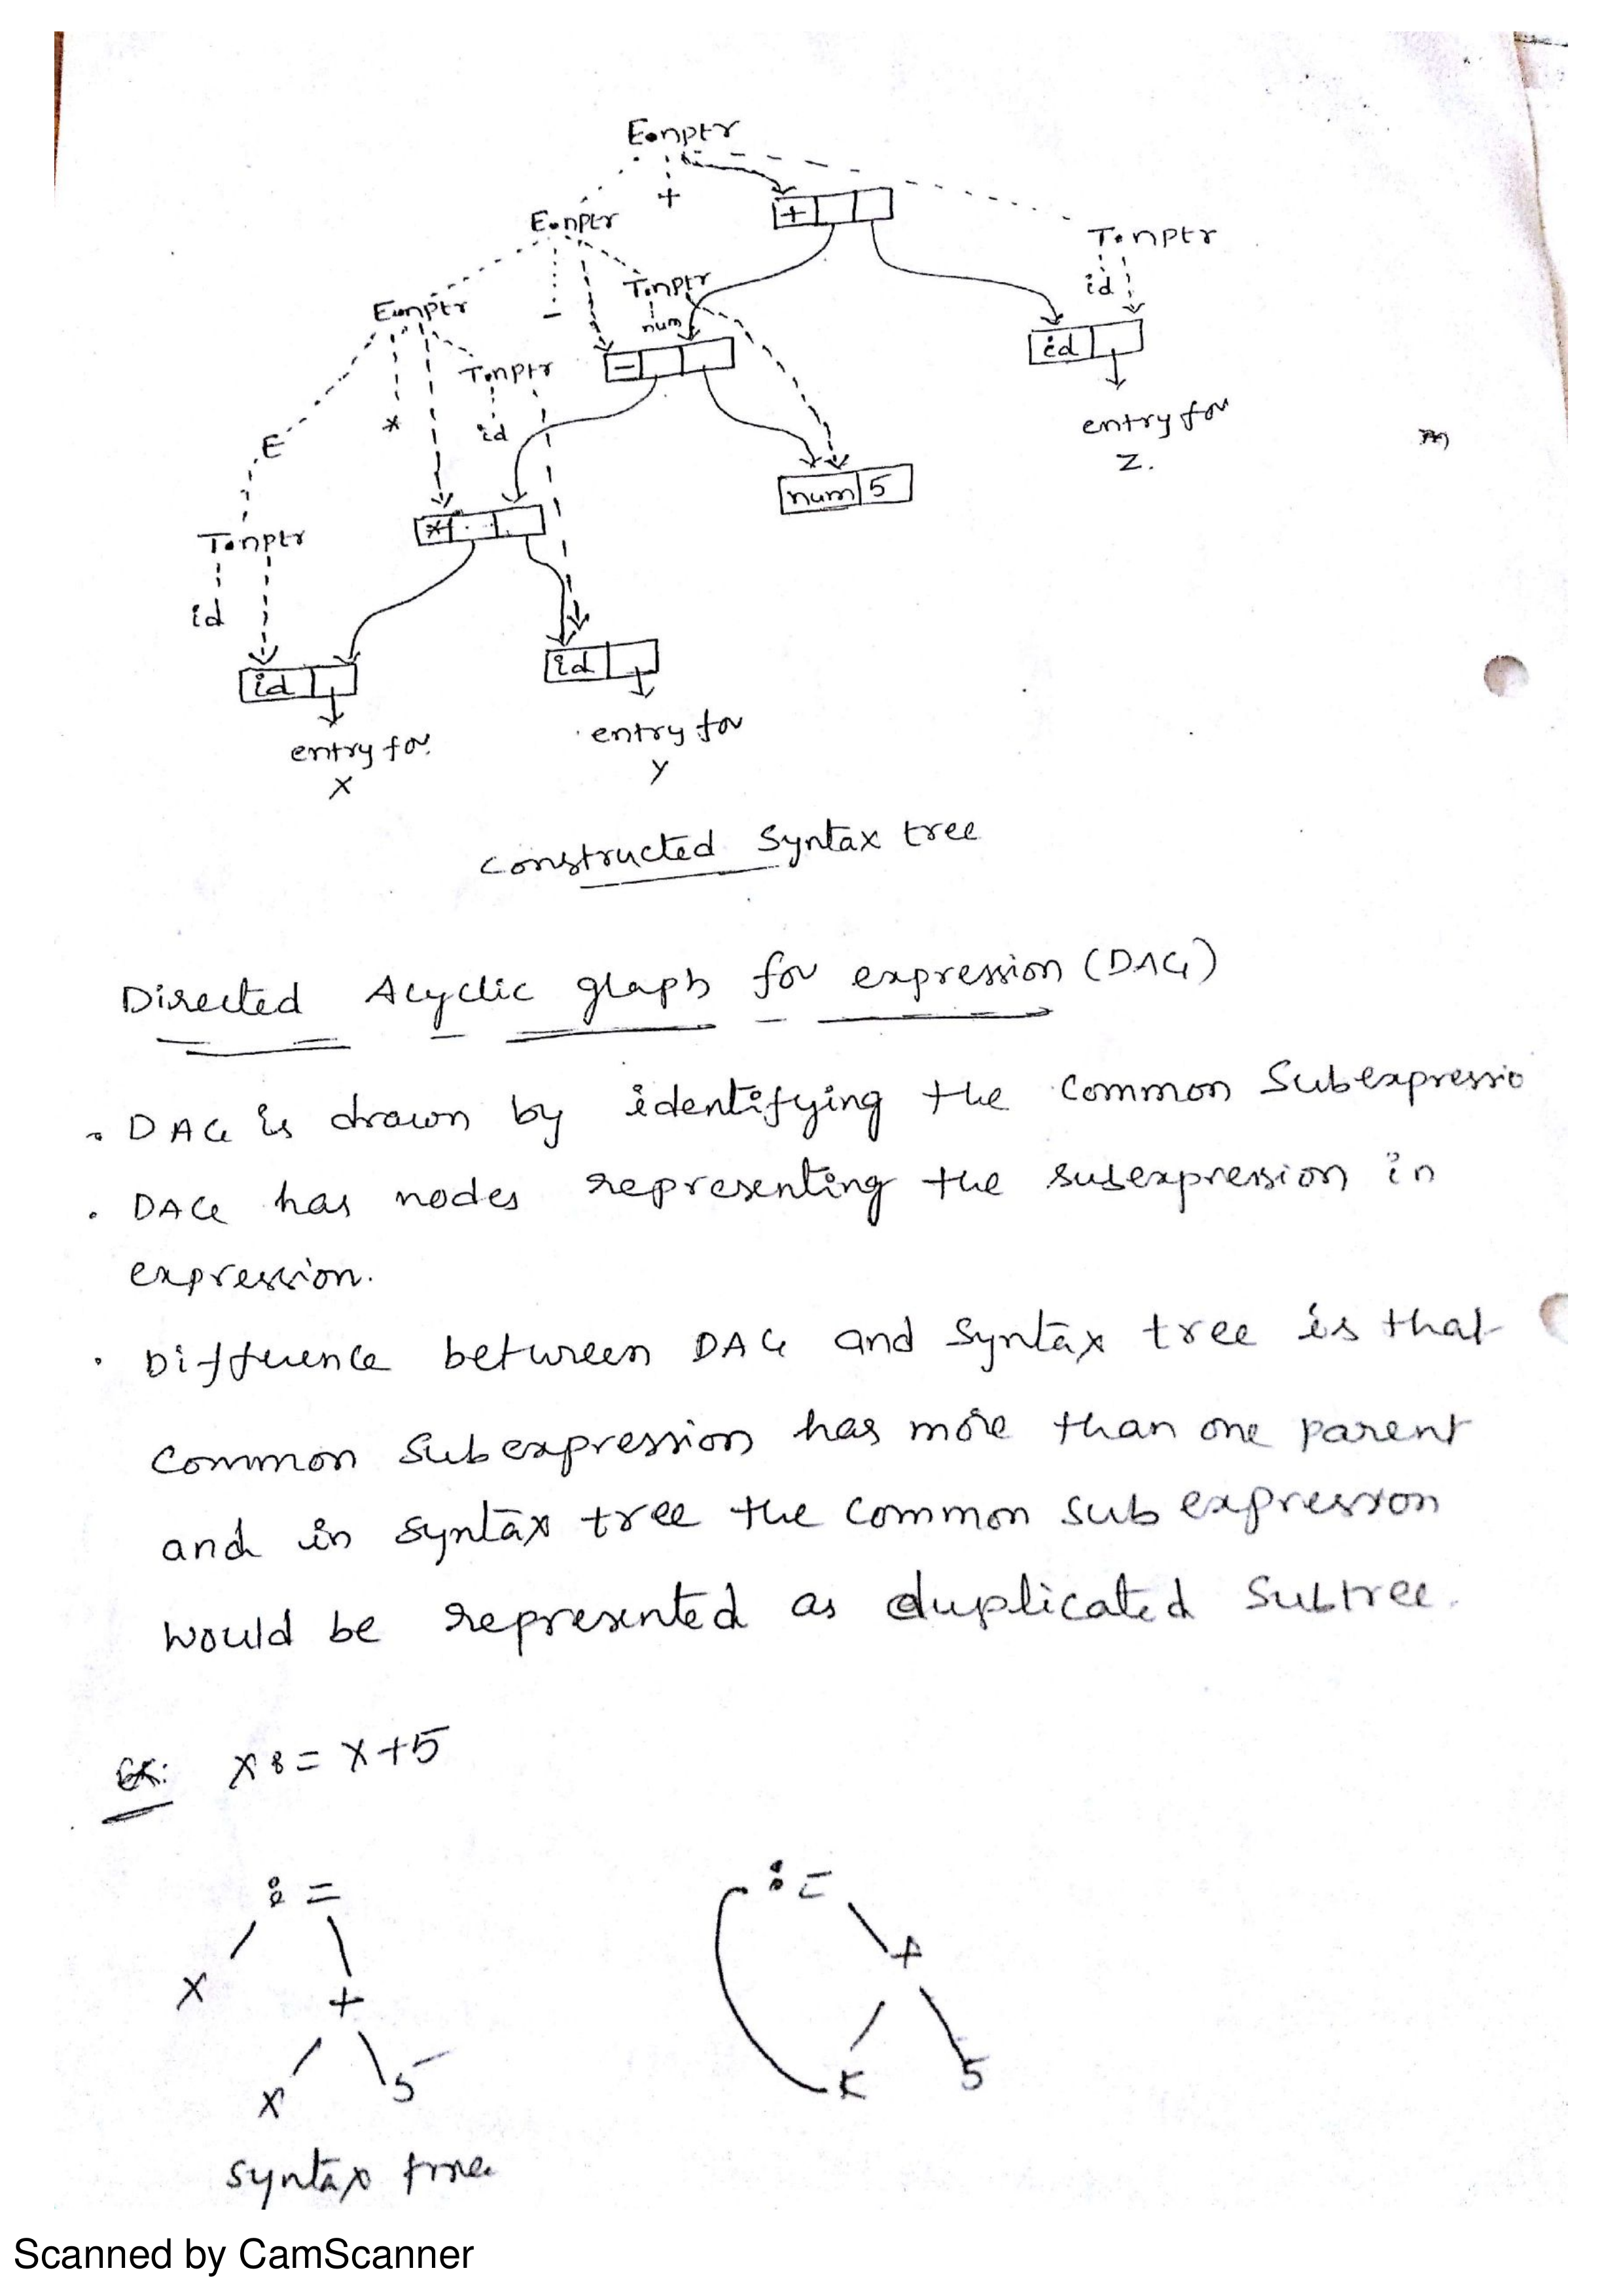 E.nptr
+
+
E.nptr
T.nptr
T.nptr
id
E.nptr
-
num
-
id
T.nptr
entry for
*
id
Z.
E
num 5
*
T.nptr
id
id
id
entry for
entry for
X
Y
Constructed Syntax tree
Directed Acyclic graph for expression (DAG)
. DAG is drawn by identifying the Common Subexpressio
. DAG has nodes representing the subexpression in
expression.
. Difference between DAG and Syntax tree is that
Common Subexpression has more than one parent
and in syntax tree the common sub expression
would be represented as duplicated Subtree.
Ex: X := X+5
:= :=
+
X
+
X 5
X 5
syntax tree
Scanned by CamScanner